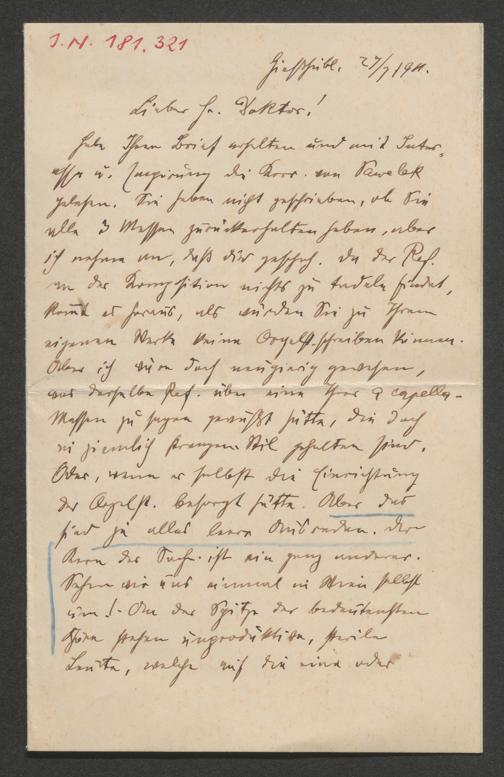 I.N. 181.321
Gießhübl. 27/7 1911.
Lieber Hr. Doktor!
Habe Ihren Brief erhalten und mit Inter-
esse u. die Korr. von Kewalek
gelesen. Sie haben nicht geschrieben, ob Sie
alle 3 Messen zurückerhalten haben, aber
ich nehme an, daß dies geschah. Da der Ref.
an der Komposition nichts zu tadeln findet,
kommt es heraus, als würden Sie zu Ihrem
eigenen Werke keine Orgelst. schreiben können.
Aber ich wäre doch neugierig gewesen,
was derselbe Ref. über eine Ihrer a capella-
Messen zu sagen gewußt hätte, die doch
in ziemlich strengem Stil gehalten sind.
Oder, wenn er selbst die Einrichtung
der Orgelst. besorgt hätte. Aber das
sind ja alles leere Ausreden. Der
Kern der Sache ist ein ganz anderer.
Sehen wir uns einmal in Wien selbst
um! - An der Spitze der bedeutendsten
Chöre stehen unproduktive, sterile
Leute, welche auf die eine oder